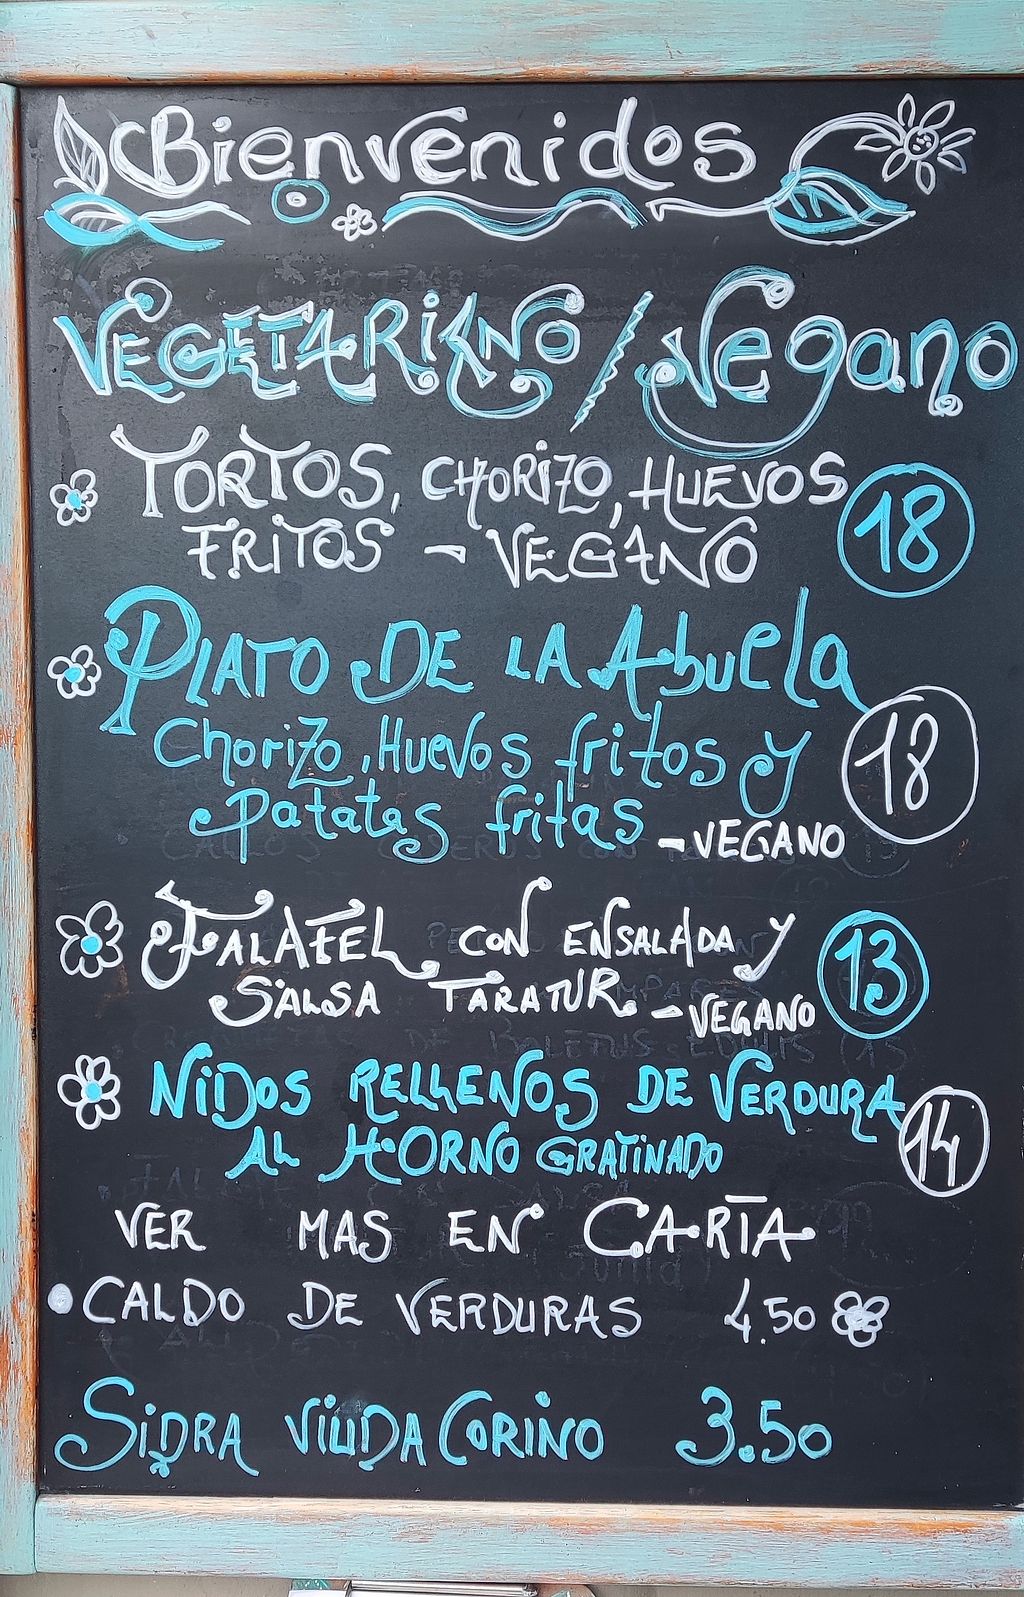 Bienvenidos
VEGETARIANO / Vegano
TORTOS, CHORIZO, HUEVOS
FRITOS - VEGANO 18
PLATO DE LA AbuelA
Chorizo, Huevos fritos y 18
patatas fritas - VEGANO
FALAFEL CON ENSALADA y 13
SALSA TARATUR - VEGANO
NiDOS RELLENOS DE VERDURA
AL HORNO GRATINADO 14
VER MAS EN CARTA
CALDO DE VERDURAS 4.50
SiDRA VIUDA CORiNO 3.50